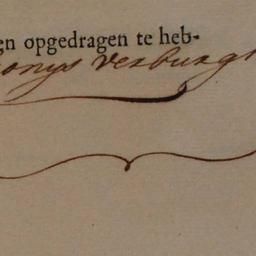 en opgedragen te heb-
onys verburgh